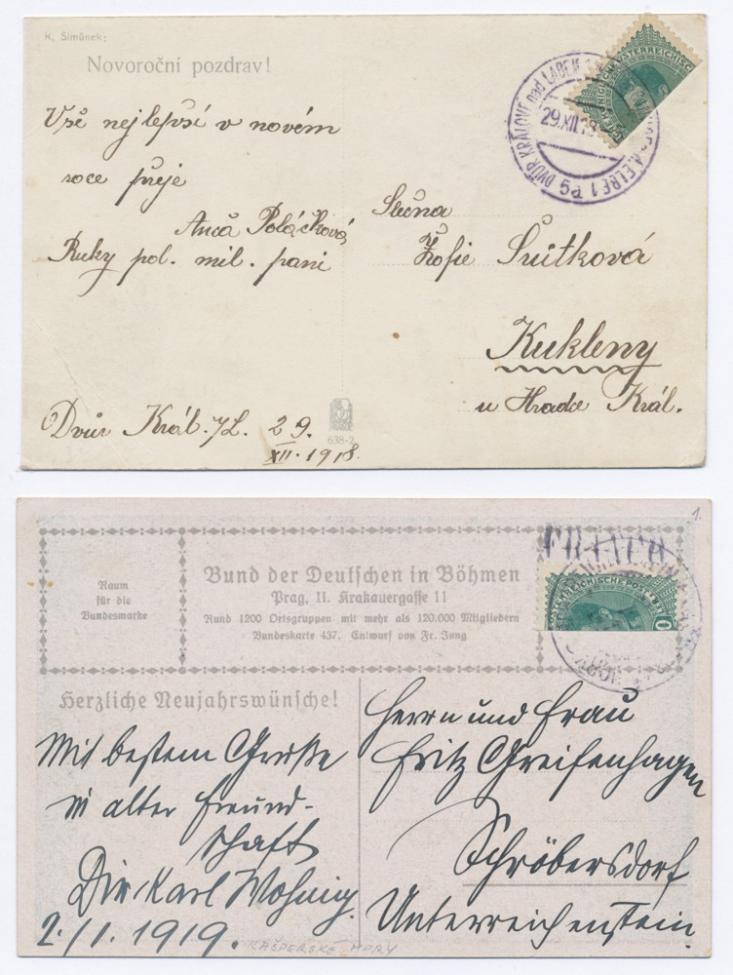 K. Šimůnek:
Novoroční pozdrav!
Vše nejlepší v novém
roce přeje
Anča Poláčková
Ruky pol. mil. paní
Dvůr Král. /L. 29.
XII. 1918.
638-2
DVŮR KRÁLOVÉ nad LABEM
29.XII.18
A. ELBE 1
Slečna
Žofie
Kukleny
u Hradce Král.
1.
FRANCO
Raum
für die
Bundesmarke
Bund der Deutschen in Böhmen
Prag, II. Krakauergasse 11
Rund 1200 Ortsgruppen mit mehr als 120.000 Mitgliedern
Bundeskarte 437. Entwurf von Fr. Jung
Herzliche Neujahrswünsche!
Mit bestem Gruße
in alter Freund-
schaft
Dir Karl Wohnig.
2./1. 1919.
KAŠPERSKÉ HORY
Herrn und Frau
Fritz Greifenhagen
Schröbersdorf
Unterreichenstein.